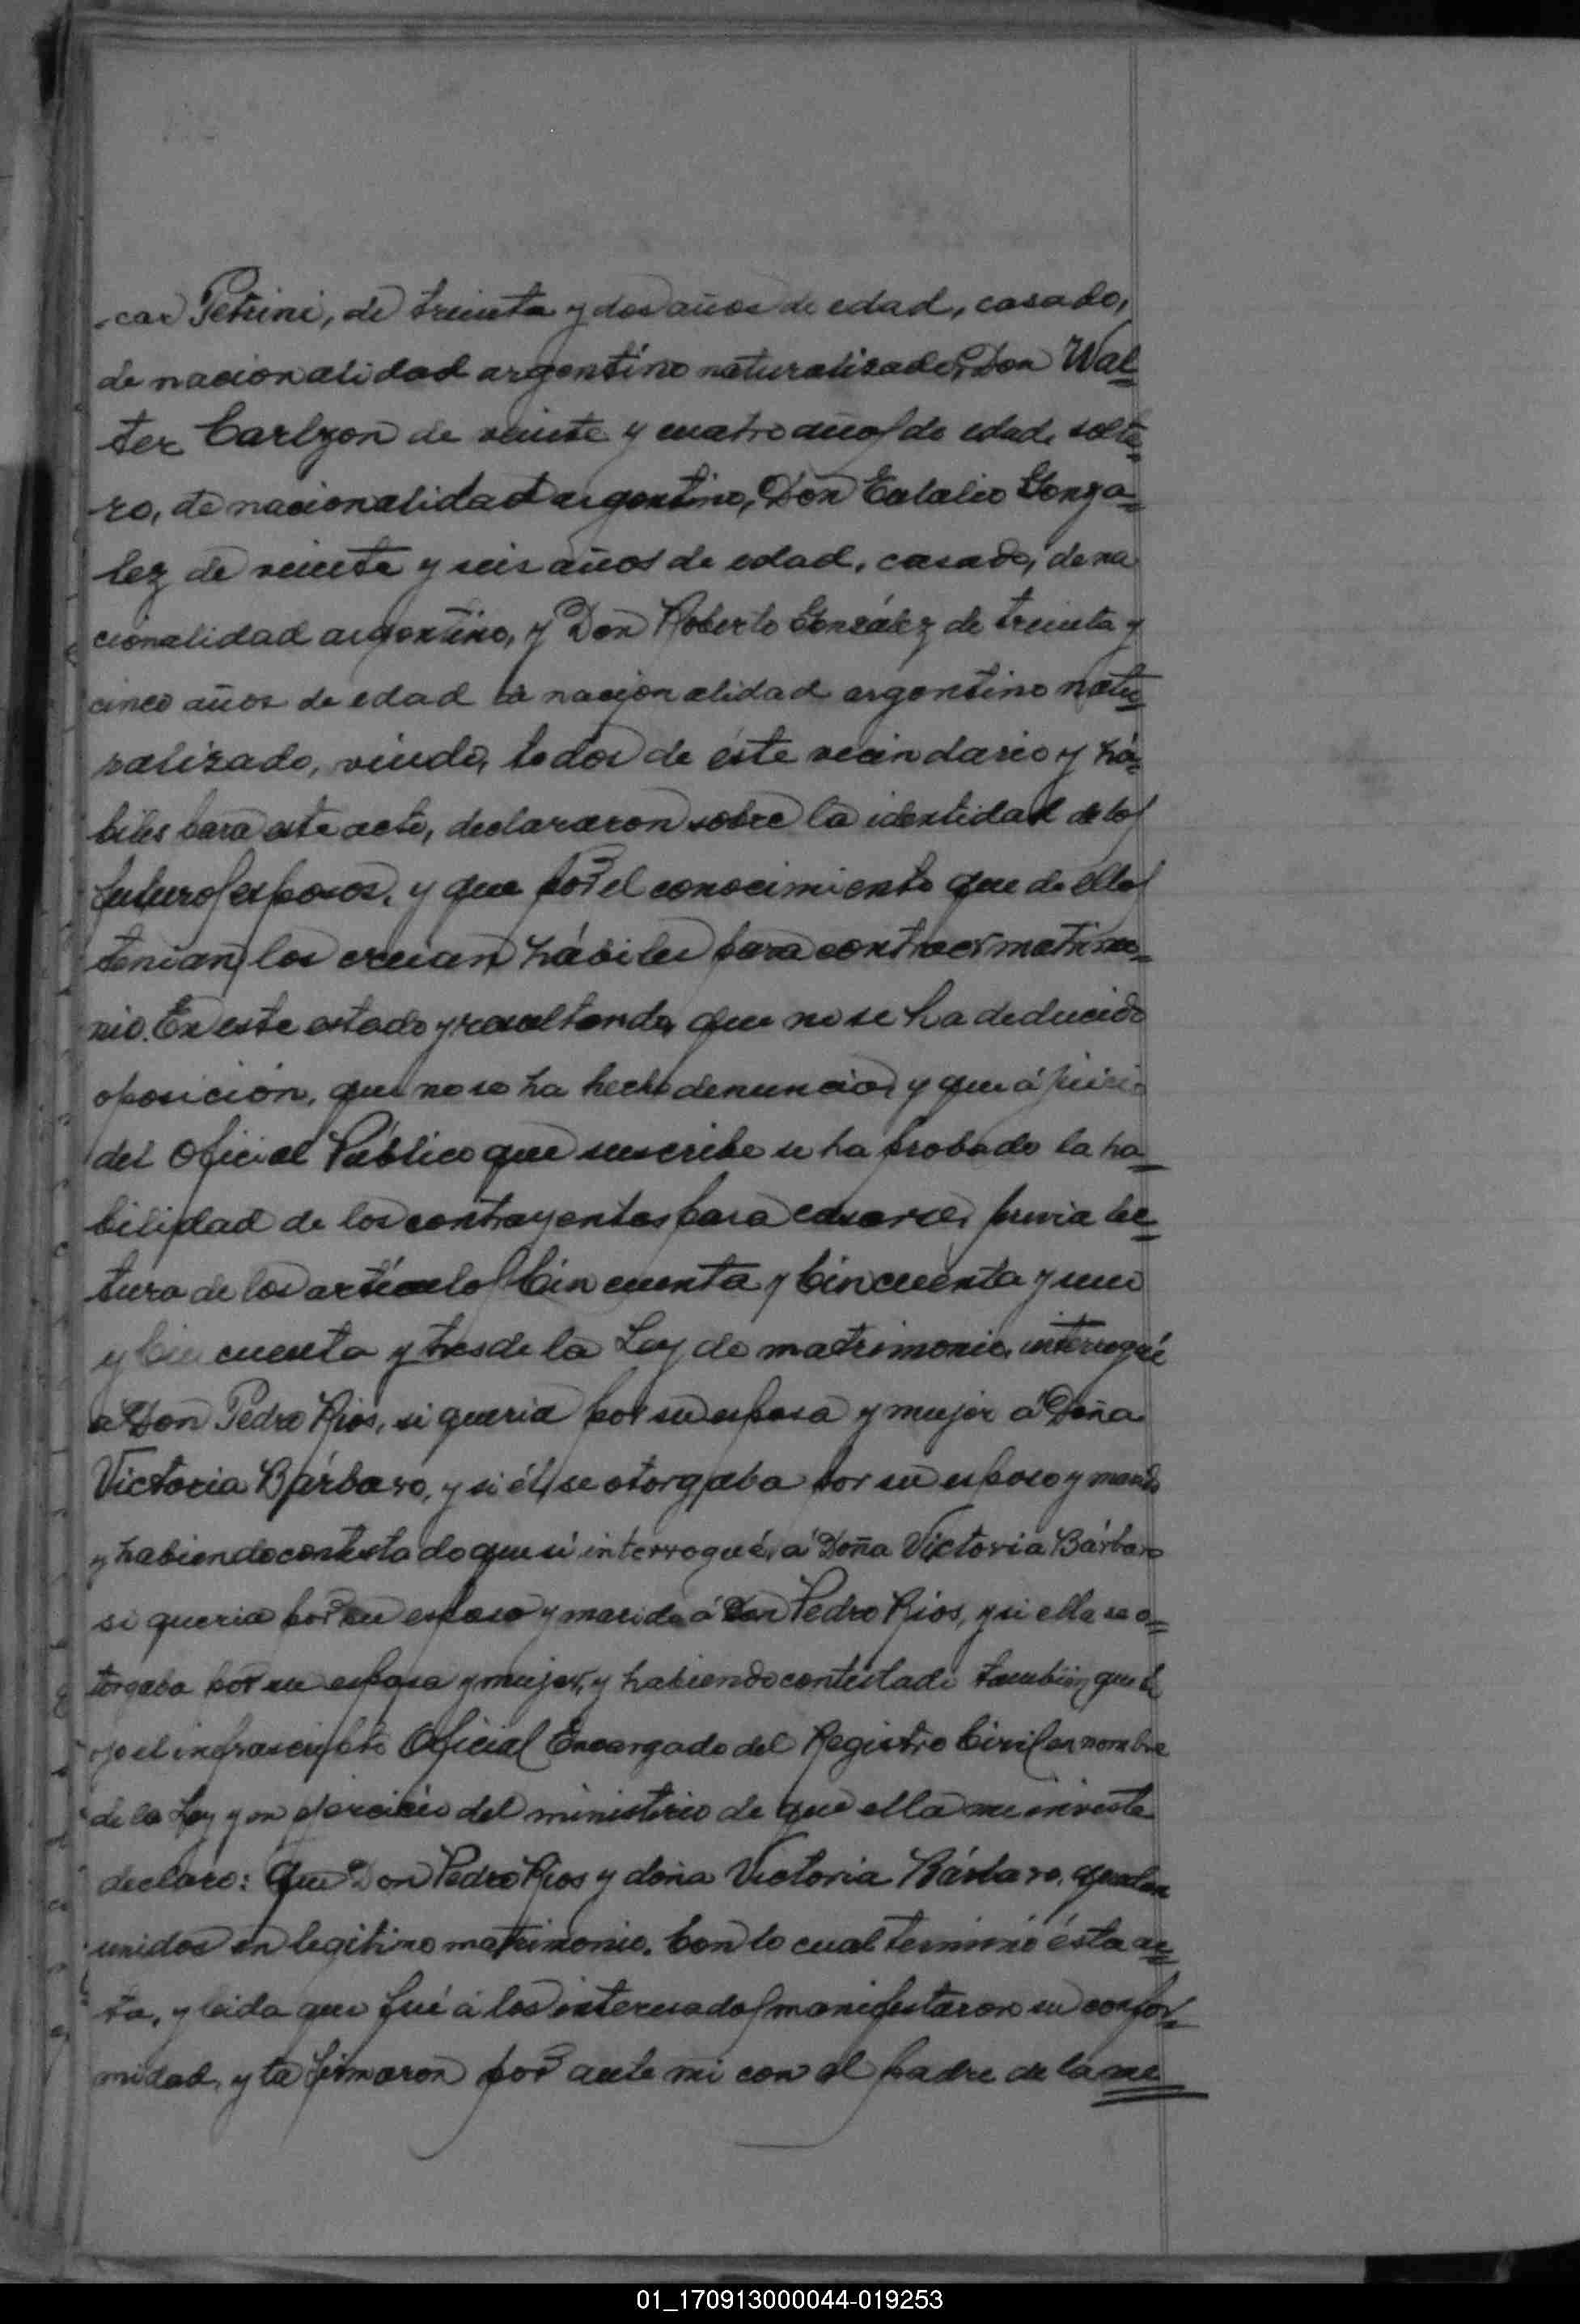 -car Petrini, de treinta y dos años de edad, casado,
de nacionalidad argentino naturalizado, Don Wal=
ter Carlzon de veinte y cuatro años de edad, solte=
ro, de nacionalidad argentino, Don Eulalio Gonza=
lez de veinte y seis años de edad, casado, de na
cionalidad argentino, y Don Roberto González de treinta y
cinco años de edad de nacionalidad argentino natu=
ralizado, viudo, todos de éste vecindario y há=
biles para este acto, declararon sobre la identidad de los
futuros esposos, y que por el conocimiento que de ellos
tenian, los creian hábiles para contraer matrimo=
nio. En este estado y resultando, que no se ha deducido
oposición, que no se ha hecho denuncia, y que á juicio
del Oficial Público que suscribe se ha probado la ha=
bilidad de los contrayentes para casarse, previa lec=
tura de los artículos Cincuenta y Cincuenta y uno
y Cincuenta y tres de la Ley de matrimonio, interrogué
a Don Pedro Rios, si queria por su esposa y mujer á Doña
Victoria Bárbaro, y si él se otorgaba por su esposo y marido
y habiendo contestado que si interrogué, á Doña Victoria Bárbaro
si queria por su esposo y marido á Don Pedro Rios, y si ella se o=
torgaba por su esposa y mujer, y habiendo contestado tambien que si
yo el infrascripto Oficial Encargado del Registro Civil en nombre
de la Ley y en ejercicio del ministerio de que ella me inviste
declaro: Que Don Pedro Rios y doña Victoria Bárbaro, quedan
unidos en legitimo matrimonio. Con lo cual terminó ésta ac=
ta, y leida que fué á los interesados manifestaron su confor=
midad, y la firmaron por ante mi con el padre de la me
01_170913000044-019253